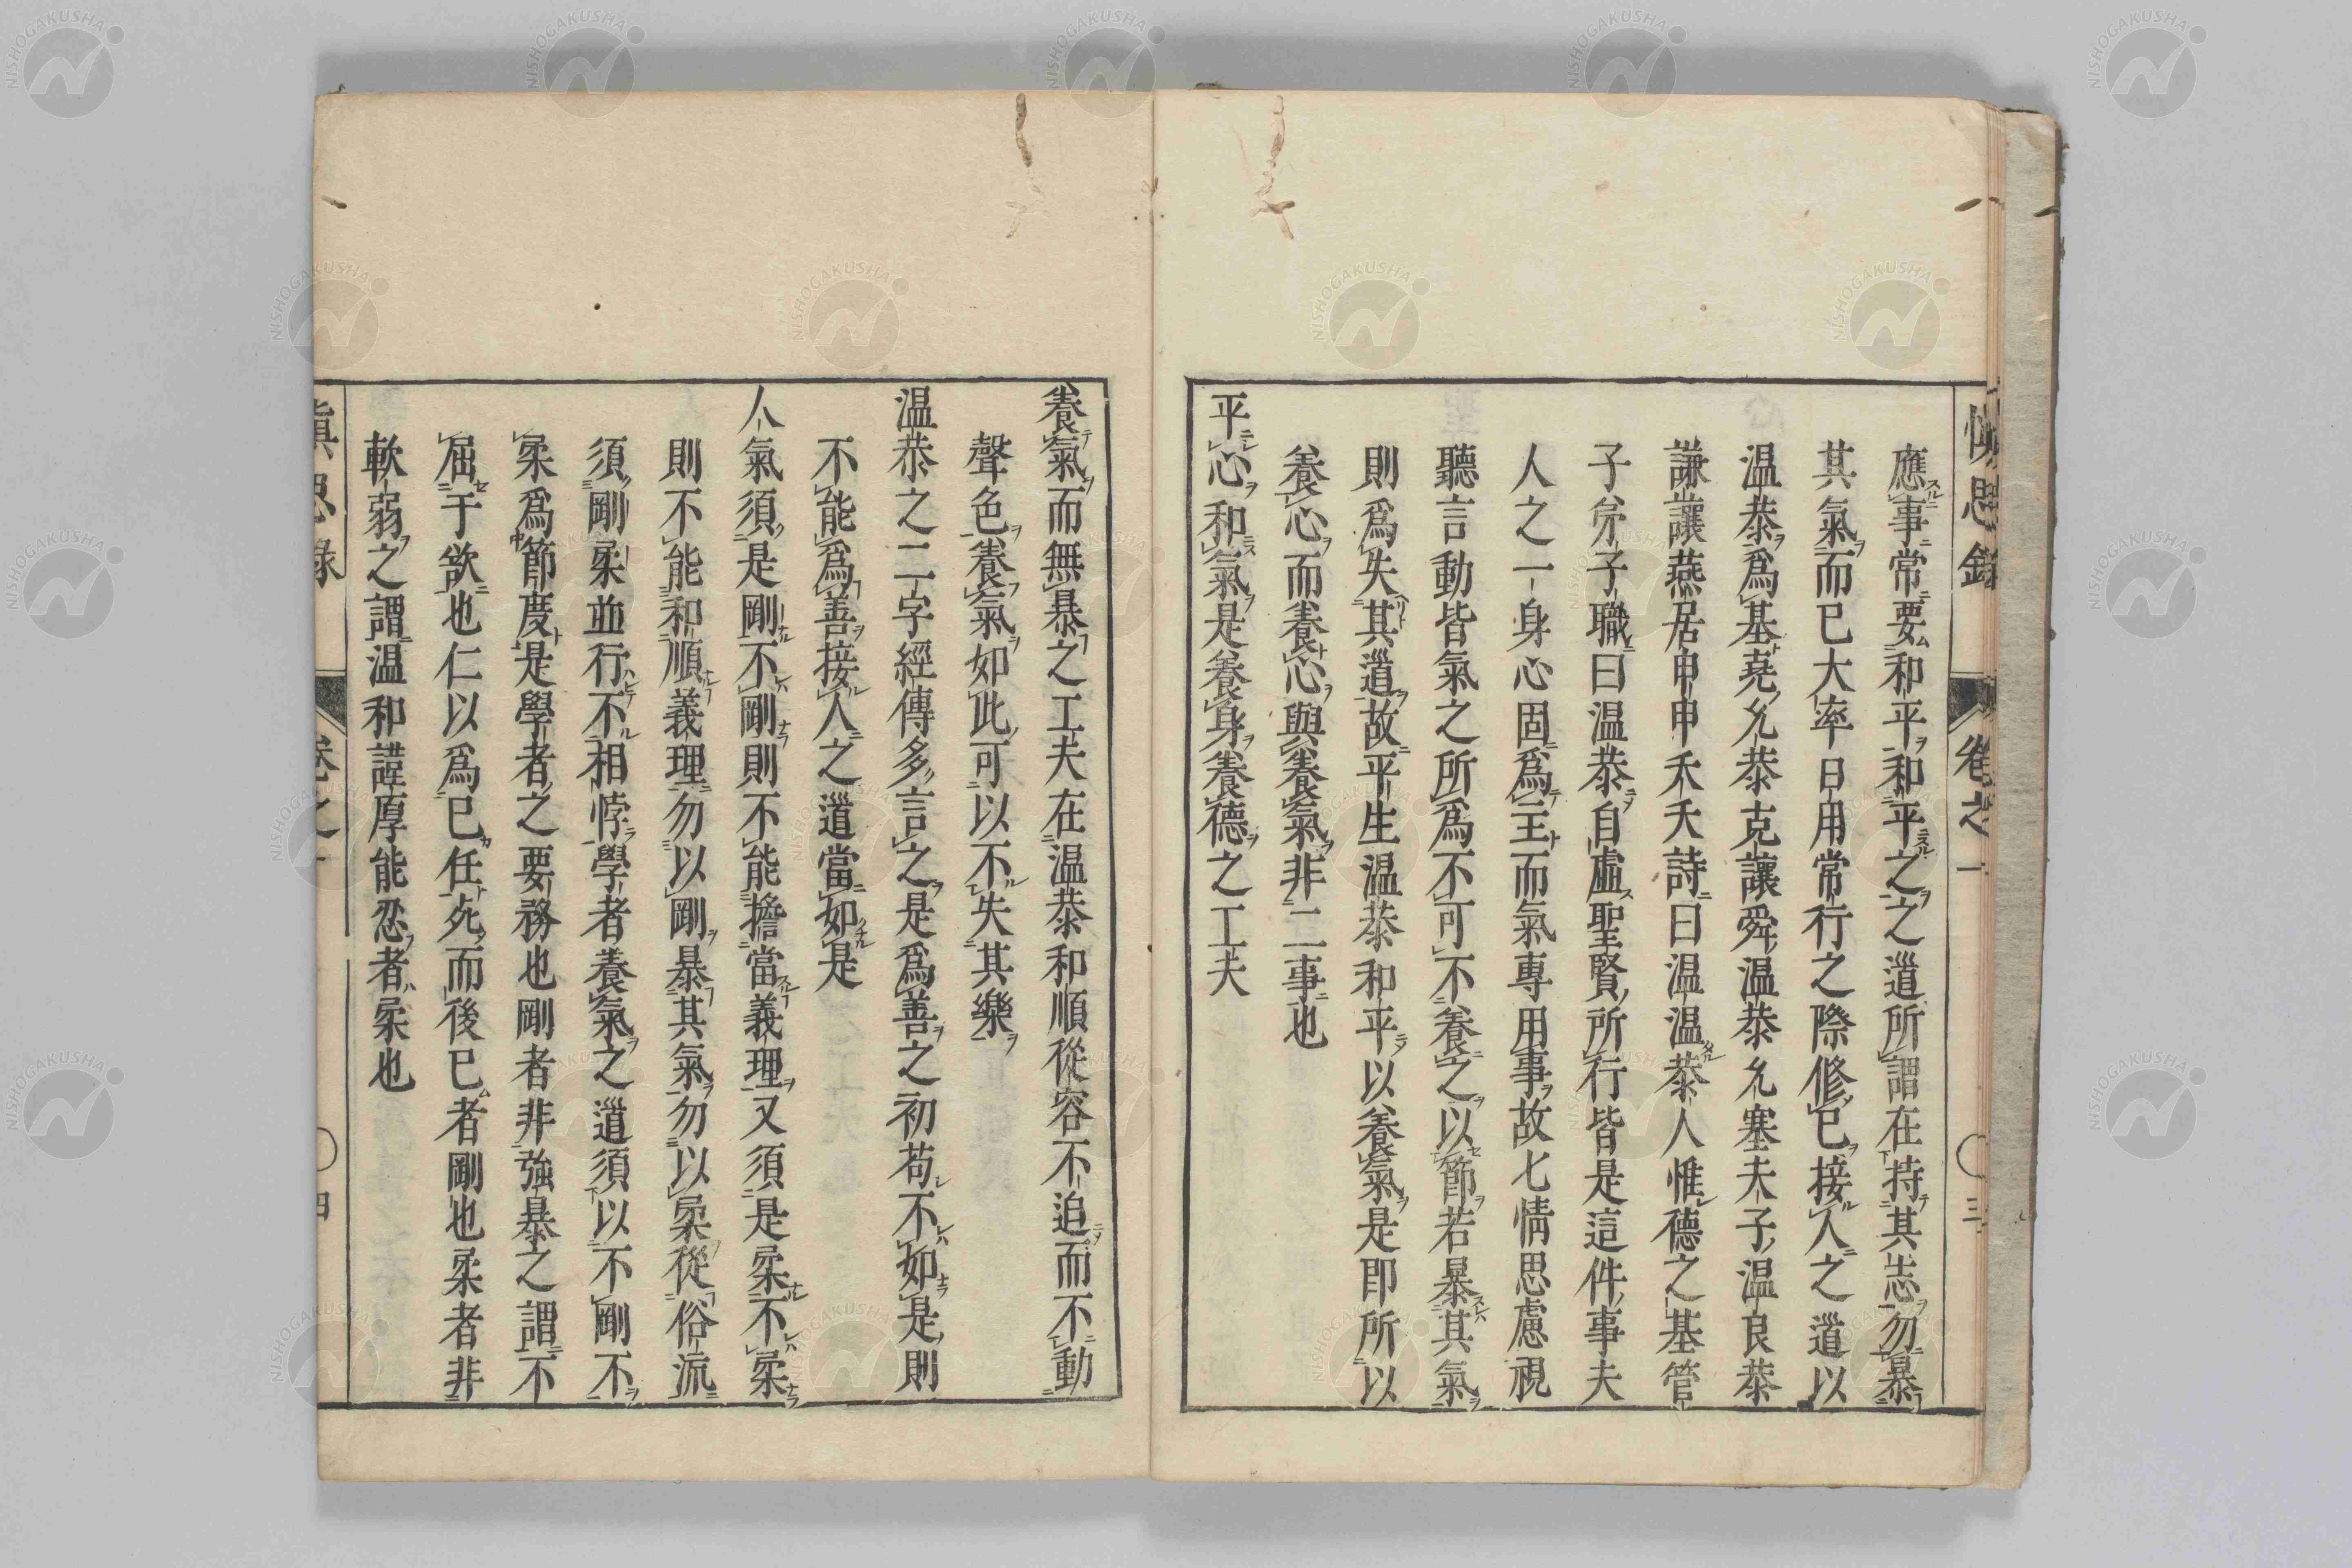 慎思録 卷之一 〇三
應事常要和平和平之之道所謂在持其志勿暴
其氣而已大率日用常行之際修己接人之道以
温恭爲基堯允恭克讓舜温恭允塞夫子温良恭
謙讓燕居申申夭夭詩曰温温恭人惟德之基管
子弟子職曰温恭自虛聖賢所行皆是這件事夫
人之一身心固爲主而氣專用事故七情思慮視
聽言動皆氣之所爲不可不養之以節若暴其氣
則爲失其道故平生温恭和平以養氣是即所以
養心而養心與養氣非二事也
平心和氣是養身養德之工夫
養氣而無暴之工夫在温恭和順從容不迫而不動
聲色養氣如此可以不失其樂
温恭之二字經傳多言之是爲善之初苟不如是則
不能爲善接人之道當如是
人氣須是剛不剛則不能擔當義理又須是柔不柔
則不能和順義理勿以剛暴其氣勿以柔從俗流
須剛柔並行不相悖學者養氣之道須以不剛不
柔爲節度是學者之要務也剛者非強暴之謂不
屈于欲也仁以爲己任死而後已者剛也柔者非
軟弱之謂温和諱厚能忍者柔也
慎思録 卷之一 〇四
NISHOGAKUSHA